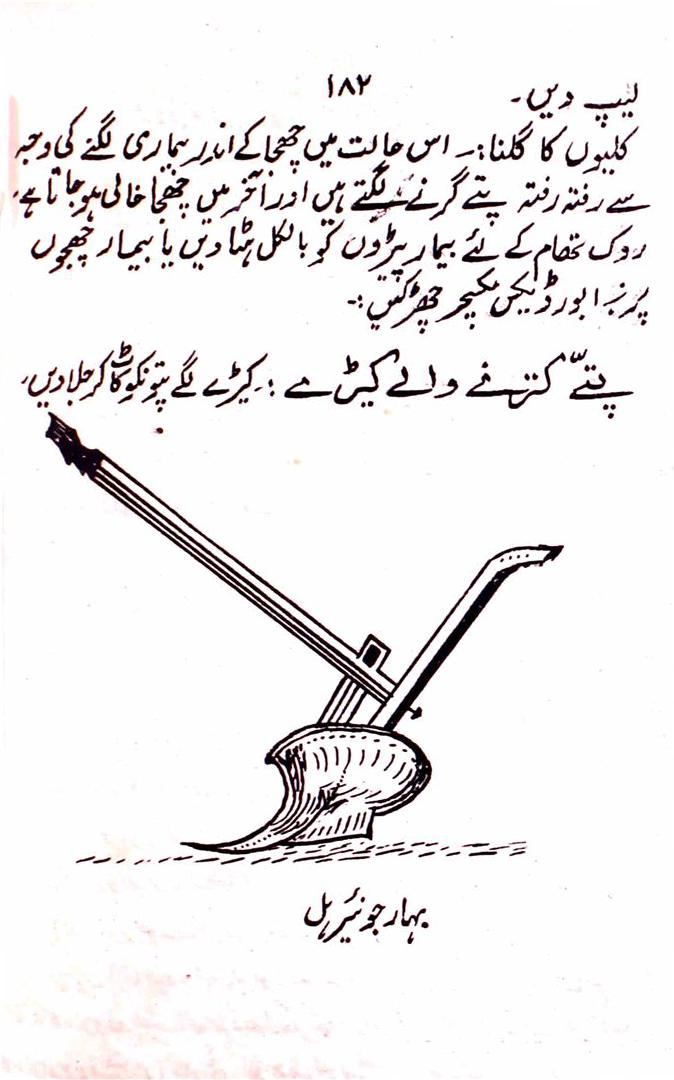 ۱۸۲
لیپ دیں۔
کلیوں کا گلنا:۔ اس حالت میں چھجا کے اندر بیماری لگنے کی وجہ
سے رفتہ رفتہ پتے گرنے لگتے ہیں اور آخر میں چھجا خالی ہو جاتا ہے،
روک تھام کے لئے بیمار پیڑوں کو بالکل ہٹا دیں یا بیمار چھجوں
پر بورڈیکس مکیچر چھڑکیں:۔
پتّے کترنے والے کیڑے:۔ کیڑے لگے پتونکو کاٹ کر جلا دیں،
بہار جونیئر ہل